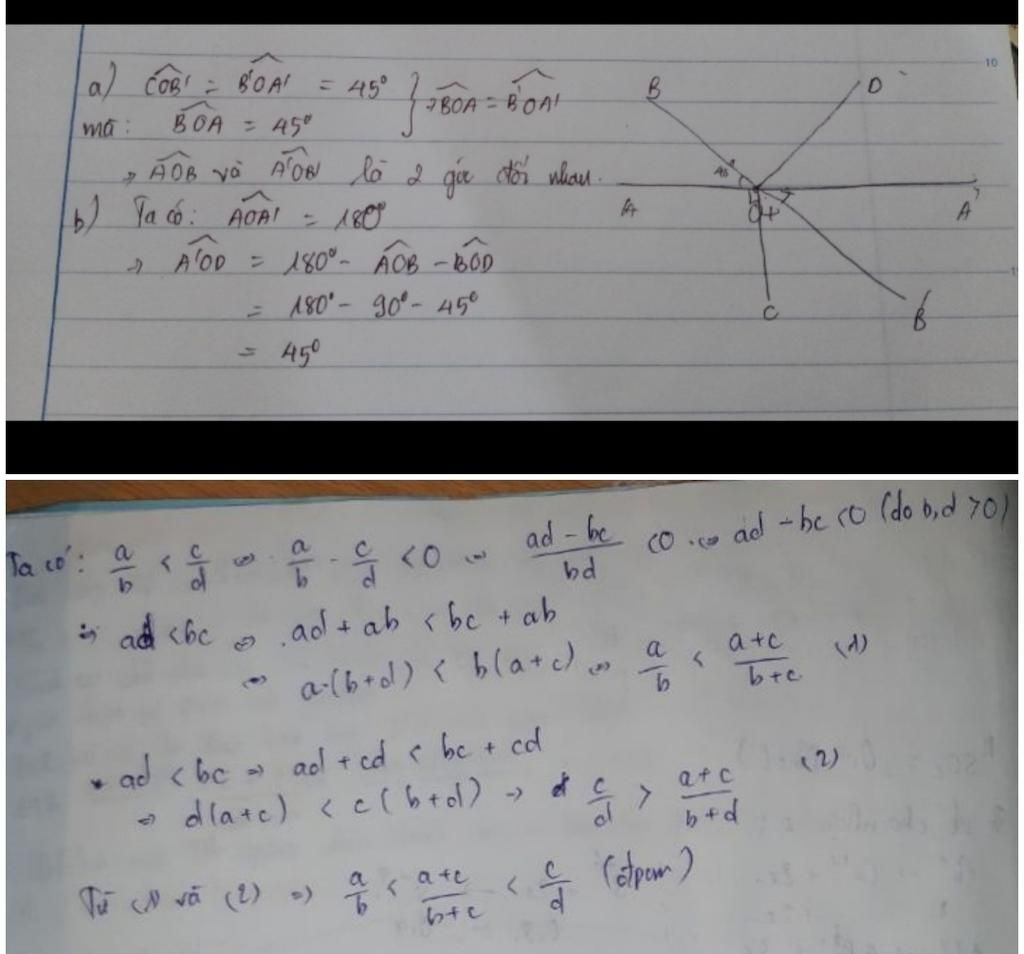 a) ∠COB' = ∠B'OA' = 45°
mà: ∠BOA = 45° } → ∠BOA = ∠B'OA'
→ ∠AOB và ∠A'OB' là 2 góc đối nhau.
b) Ta có: ∠AOA' = 180°
→ ∠A'OD = 180° - ∠AOB - ∠BOD
= 180° - 90° - 45°
= 45°
B
D
45°
A
O
A'
C
B'
10
Ta có: a/b < c/d ⇔ a/b - c/d < 0 ⇔ (ad - bc)/bd < 0 ⇔ ad - bc < 0 (do b,d > 0)
⇒ ad < bc ⇔ ad + ab < bc + ab
⇔ a.(b+d) < b(a+c) ⇔ a/b < (a+c)/(b+c) (1)
* ad < bc ⇒ ad + cd < bc + cd
⇒ d(a+c) < c(b+d) → c/d > (a+c)/(b+d) (2)
Từ (1) và (2) ⇒ a/b < (a+c)/(b+c) < c/d (đpcm)